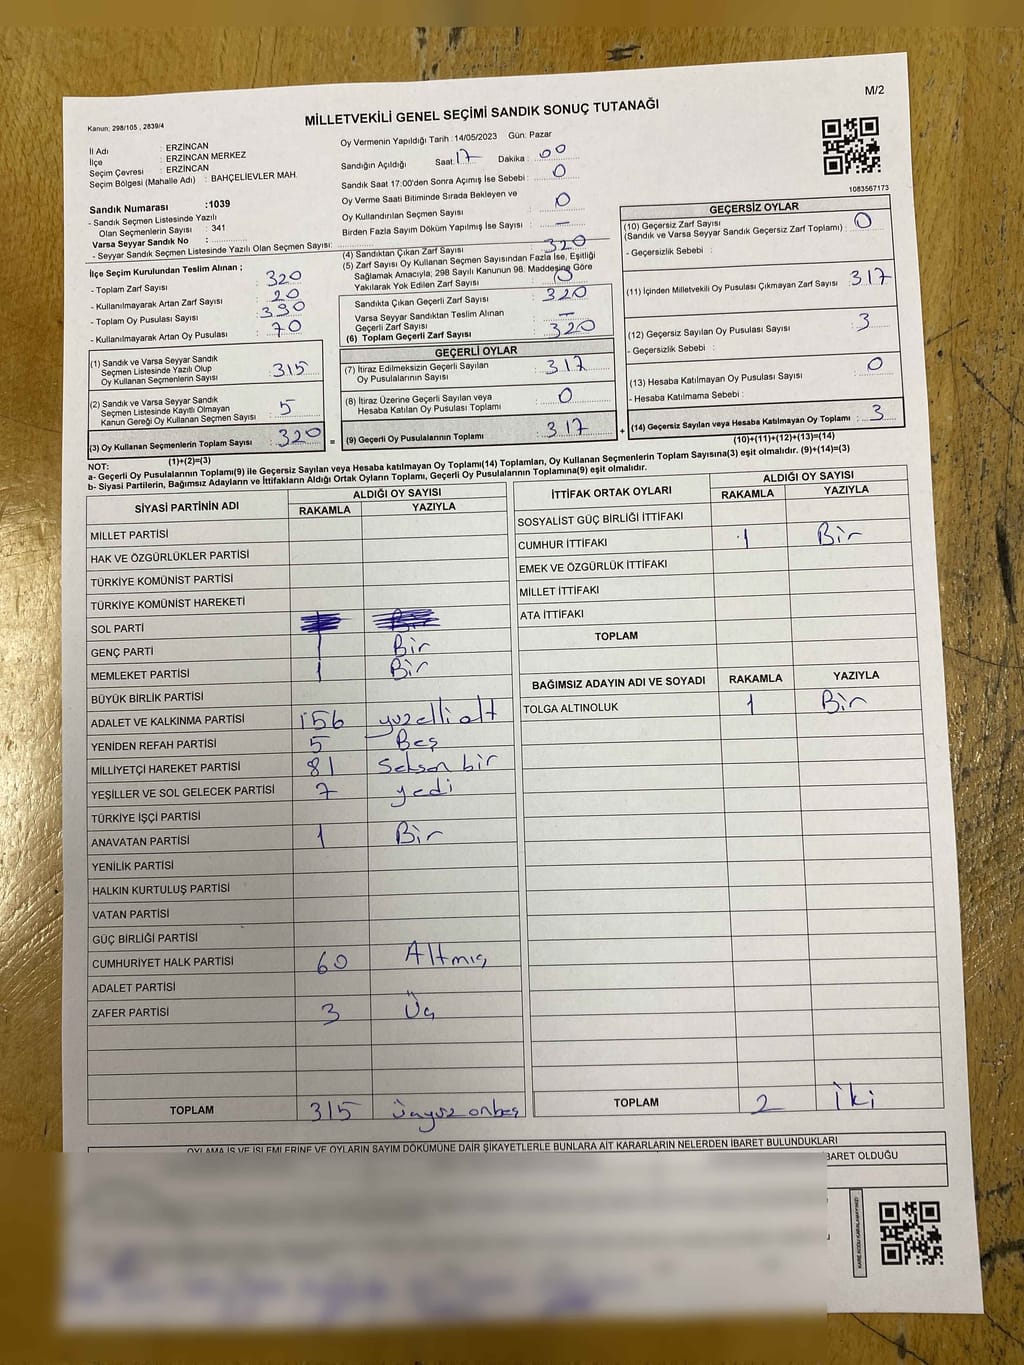 M/2
Kanun; 298/105 , 2839/4
MİLLETVEKİLİ GENEL SEÇİMİ SANDIK SONUÇ TUTANAĞI
İl Adı : ERZİNCAN
İlçe : ERZİNCAN MERKEZ
Seçim Çevresi : ERZİNCAN
Seçim Bölgesi (Mahalle Adı) : BAHÇELİEVLER MAH.
Sandık Numarası :1039
- Sandık Seçmen Listesinde Yazılı
Olan Seçmenlerin Sayısı : 341
Varsa Seyyar Sandık No :
- Seyyar Sandık Seçmen Listesinde Yazılı Olan Seçmen Sayısı:
Oy Vermenin Yapıldığı Tarih : 14/05/2023 Gün: Pazar
Sandığın Açıldığı Saat: 17 Dakika : 00
Sandık Saat 17:00'den Sonra Açımış İse Sebebi : 0
Oy Verme Saati Bitiminde Sırada Bekleyen ve
Oy Kullandırılan Seçmen Sayısı : 0
Birden Fazla Sayım Döküm Yapılmış İse Sayısı : —
1083567173
İlçe Seçim Kurulundan Teslim Alınan ;
- Toplam Zarf Sayısı : 320
- Kullanılmayarak Artan Zarf Sayısı : 20
- Toplam Oy Pusulası Sayısı : 390
- Kullanılmayarak Artan Oy Pusulası : 70
(1) Sandık ve Varsa Seyyar Sandık
Seçmen Listesinde Yazılı Olup
Oy Kullanan Seçmenlerin Sayısı : 315
(2) Sandık ve Varsa Seyyar Sandık
Seçmen Listesinde Kayıtlı Olmayan
Kanun Gereği Oy Kullanan Seçmen Sayısı : 5
(3) Oy Kullanan Seçmenlerin Toplam Sayısı : 320
(1)+(2)=(3)
(4) Sandıktan Çıkan Zarf Sayısı : 320
(5) Zarf Sayısı Oy Kullanan Seçmen Sayısından Fazla İse, Eşitliği
Sağlamak Amacıyla; 298 Sayılı Kanunun 98. Maddesine Göre
Yakılarak Yok Edilen Zarf Sayısı : 0
Sandıkta Çıkan Geçerli Zarf Sayısı : 320
Varsa Seyyar Sandıktan Teslim Alınan
Geçerli Zarf Sayısı : —
(6) Toplam Geçerli Zarf Sayısı : 320
GEÇERLİ OYLAR
(7) İtiraz Edilmeksizin Geçerli Sayılan
Oy Pusulalarının Sayısı : 317
(8) İtiraz Üzerine Geçerli Sayılan veya
Hesaba Katılan Oy Pusulası Toplamı : 0
= (9) Geçerli Oy Pusulalarının Toplamı : 317 +
GEÇERSİZ OYLAR
(10) Geçersiz Zarf Sayısı
(Sandık ve Varsa Seyyar Sandık Geçersiz Zarf Toplamı) : 0
- Geçersizlik Sebebi :
(11) İçinden Milletvekili Oy Pusulası Çıkmayan Zarf Sayısı : 317
(12) Geçersiz Sayılan Oy Pusulası Sayısı : 3
- Geçersizlik Sebebi :
(13) Hesaba Katılmayan Oy Pusulası Sayısı : 0
- Hesaba Katılmama Sebebi :
(14) Geçersiz Sayılan veya Hesaba Katılmayan Oy Toplamı : 3
(10)+(11)+(12)+(13)=(14)
NOT:
a- Geçerli Oy Pusulalarının Toplamı(9) ile Geçersiz Sayılan veya Hesaba katılmayan Oy Toplamı(14) Toplamları, Oy Kullanan Seçmenlerin Toplam Sayısına(3) eşit olmalıdır. (9)+(14)=(3)
b- Siyasi Partilerin, Bağımsız Adayların ve İttifakların Aldığı Ortak Oyların Toplamı, Geçerli Oy Pusulalarının Toplamına(9) eşit olmalıdır.
SİYASİ PARTİNİN ADI ALDIĞI OY SAYISI
RAKAMLA YAZIYLA
MİLLET PARTİSİ
HAK VE ÖZGÜRLÜKLER PARTİSİ
TÜRKİYE KOMÜNİST PARTİSİ
TÜRKİYE KOMÜNİST HAREKETİ
SOL PARTİ
GENÇ PARTİ 1 Bir
MEMLEKET PARTİSİ 1 Bir
BÜYÜK BİRLİK PARTİSİ
ADALET VE KALKINMA PARTİSİ 156 yüzelli alt
YENİDEN REFAH PARTİSİ 5 Beş
MİLLİYETÇİ HAREKET PARTİSİ 81 Seksen bir
YEŞİLLER VE SOL GELECEK PARTİSİ 7 yedi
TÜRKİYE İŞÇİ PARTİSİ
ANAVATAN PARTİSİ 1 Bir
YENİLİK PARTİSİ
HALKIN KURTULUŞ PARTİSİ
VATAN PARTİSİ
GÜÇ BİRLİĞİ PARTİSİ
CUMHURİYET HALK PARTİSİ 60 Altmış
ADALET PARTİSİ
ZAFER PARTİSİ 3 Üç
TOPLAM 315 üçyüz onbeş
İTTİFAK ORTAK OYLARI ALDIĞI OY SAYISI
RAKAMLA YAZIYLA
SOSYALİST GÜÇ BİRLİĞİ İTTİFAKI
CUMHUR İTTİFAKI 1 Bir
EMEK VE ÖZGÜRLÜK İTTİFAKI
MİLLET İTTİFAKI
ATA İTTİFAKI
TOPLAM
BAĞIMSIZ ADAYIN ADI VE SOYADI RAKAMLA YAZIYLA
TOLGA ALTINOLUK 1 Bir
TOPLAM 2 iki
OYLAMA İŞ VE İŞLEMLERİNE VE OYLARIN SAYIM DÖKÜMÜNE DAİR ŞİKAYETLERLE BUNLARA AİT KARARLARIN NELERDEN İBARET BULUNDUKLARI
BARET OLDUĞU